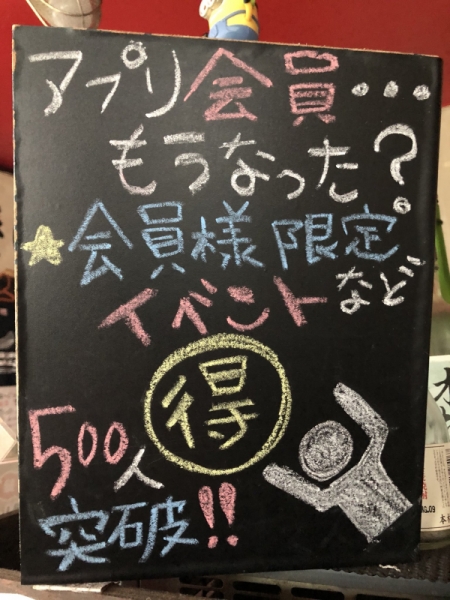 アプリ会員・・・
もうなった？
会員様限定
イベントなど
得
500人
突破!!